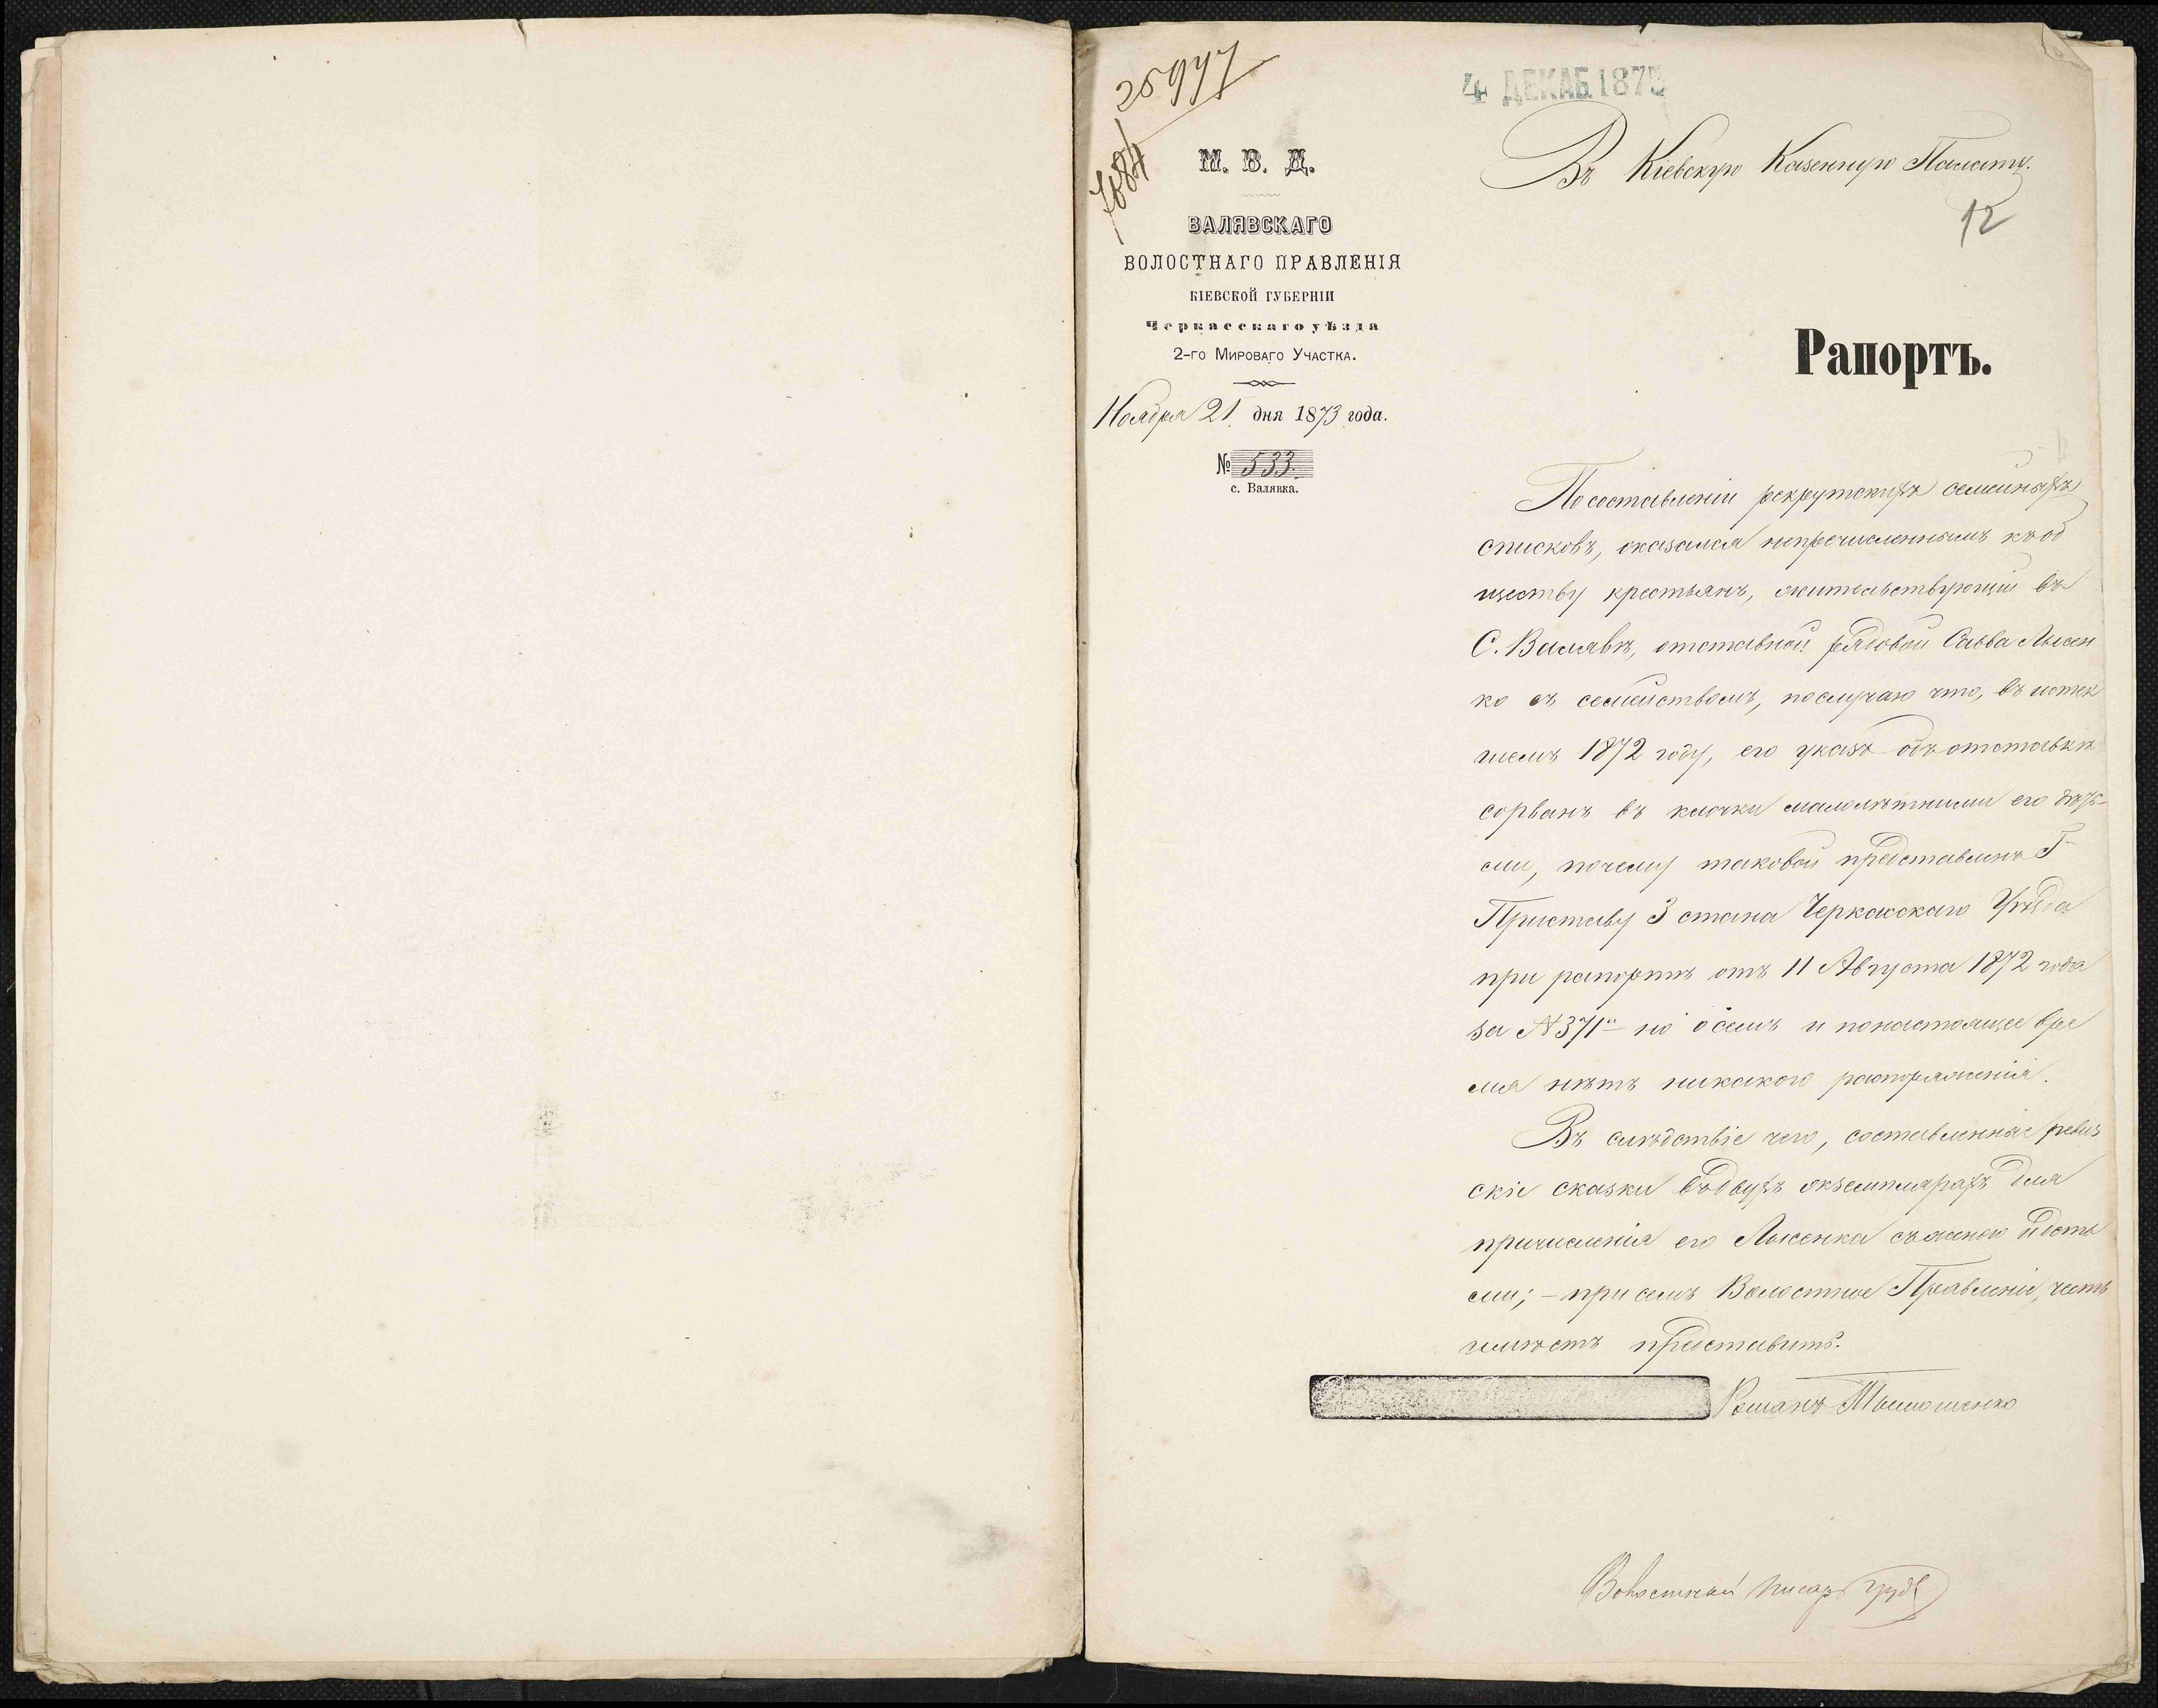 25977
7684
4 ДЕКАБ. 1873
М. В. Д.
ВАЛЯВСКАГО
ВОЛОСТНАГО ПРАВЛЕНІЯ
КІЕВСКОЙ ГУБЕРНІИ
Черкасскаго уѣзда
2-го Мироваго Участка.
Ноября 21 дня 1873 года.
№ 533.
с. Валявка.
Въ Кіевскую Казенную Палату.
12
Рапортъ.
По составленіи рекрутскихъ семейныхъ
списковъ, оказался непречисленнымъ къ об
ществу крестьянъ, жительствующій въ
С. Валявкѣ, отставной рядовой Савва Лысен
ко съ семействомъ, послучаю что, въ истек
шемъ 1872 году, его указъ объ отставкѣ
сорванъ въ клочки малолѣтними его дѣть-
ми, почему таковой представленъ Г.
Приставу 3 стана Черкасскаго Уѣзда
при рапортѣ отъ 11 Августа 1872 года
за № 371м но осемъ и понастоящее вре
мя нѣтъ никакого распоряженія.
Въ слѣдствіе чего, составленныя ревиз
скіе сказки въ двухъ экземплярахъ для
причисленія его Лысенка съ женою и дѣть
ми; – при семъ Волостное Правленіе, честь
имѣетъ представить.
Романъ Тымошенко
Волостный писарь